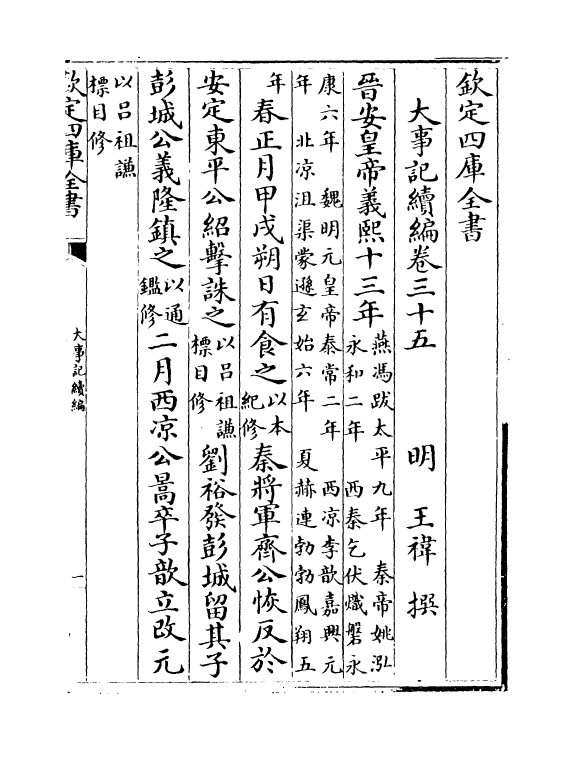 欽定四庫全書
大事記續編卷三十五 明 王禕 撰
晉安皇帝義熙十三年
燕馮跋太平九年 秦帝姚泓
永和二年 西秦乞伏熾磐永
康六年 魏明元皇帝泰常二年 西凉李歆嘉興元
年 北凉沮渠蒙遜玄始六年 夏赫連勃勃鳳翔五
年 春正月甲戌朔日有食之 以本紀修 秦將軍齊公恢反於
安定東平公紹擊誅之 以呂祖謙標目修 劉裕發彭城留其子
彭城公義隆鎮之 以通鑑修 二月西凉公暠卒子歆立改元
以呂祖謙
標目修
欽定四庫全書
大事記續編
一